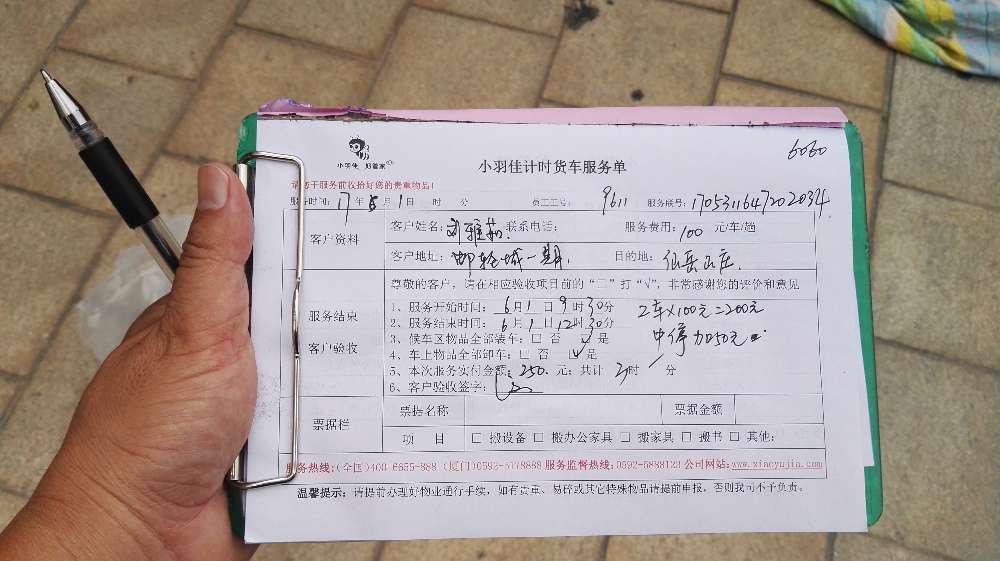 6060
小羽佳 好管家
小羽佳计时货车服务单
请您于服务前收拾好您的贵重物品！
服务时间: 17 年 6 月 1 日 时 分 员工工号: 9611 服务联号: 1705311647202034
客户资料
客户姓名: 联系电话: 服务费用: 100 元/车/趟
客户地址: 邮轮城一期. 目的地: 仙岳山庄.
服务结束
客户验收
尊敬的客户，请在相应验收项目前的“□”打“√”，非常感谢您的评价和意见
1、服务开始时间: 6月1日9时30分 2车×100元=200元
2、服务结束时间: 6月1日12时30分
中停加50元
3、候车区物品全部装车: □ 否 ☑ 是
4、车上物品全部卸车: □ 否 ☑ 是
5、本次服务实付金额: 250. 元: 共计 3时 分
6、客户验收签字:
票据栏
票据名称 票据金额
项 目 □ 搬设备 □ 搬办公家具 □ 搬家具 □ 搬书 □ 其他:
服务热线:(全国)400-6655-888 (厦门)0592-5178888 服务监督热线:0592-5888123 公司网站:www.xiaoyujia.com
温馨提示: 请提前办理好物业通行手续，如有贵重、易碎或其它特殊物品请提前申报，否则我司不予负责。